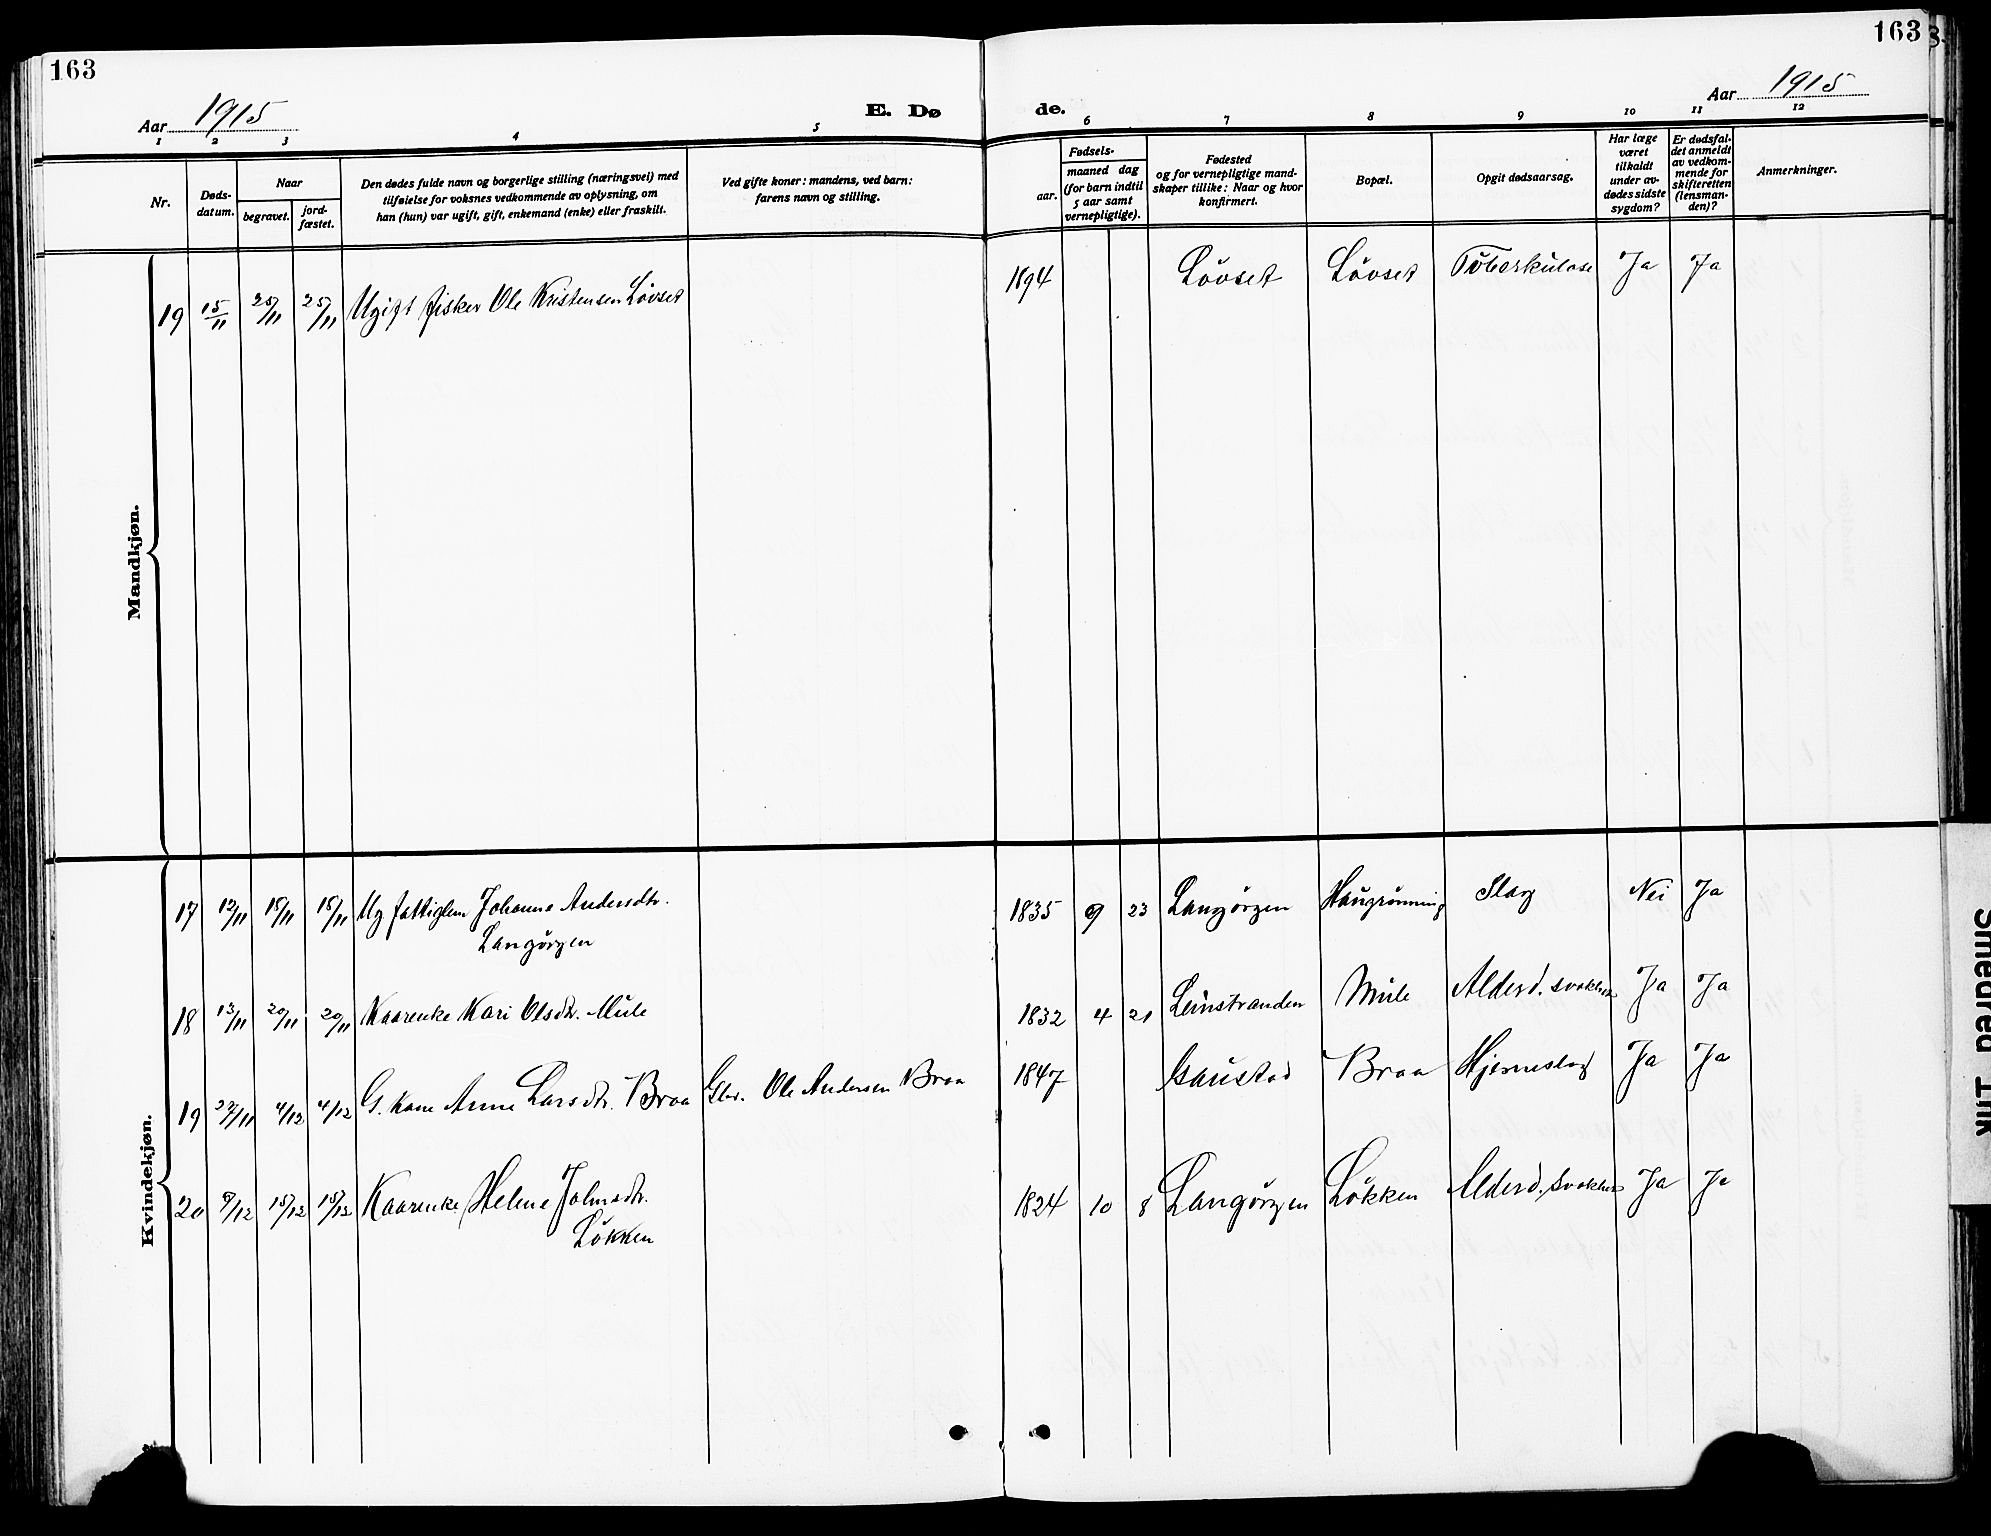 163
163
Aar 1915
E. Dø
de.
Aar 1915
1 2 3 4 5 6 7 8 9 10 11 12
Nr.
Døds-
datum.
Naar
begravet.
jord-
fæstet.
Den dødes fulde navn og borgerlige stilling (næringsvei) med
tilføielse for voksnes vedkommende av oplysning, om
han (hun) var ugift, gift, enkemand (enke) eller fraskilt.
Ved gifte koner: mandens, ved barn:
farens navn og stilling.
Fødsels-
aar.
maaned dag
(for barn indtil
5 aar samt
vernepligtige).
Fødested
og for vernepligtige mand-
skaper tillike: Naar og hvor
konfirmert.
Bopæl.
Opgit dødsaarsag.
Har læge
været
tilkaldt
under av-
dødes sidste
sygdom?
Er dødsfal-
det anmeldt
av vedkom-
mende for
skifteretten
(lensman-
den)?
Anmerkninger.
Mandkjøn.
19 15/11 25/11 25/11 Ugift fisker Ole Kristensen Løvset 1894 Løvset Løvset Tuberkulose Ja Ja
Kvindekjøn.
17 12/11 18/11 18/11 Ug fattiglem Johanna Andersdtr. 1835 9 23 Langørgen Haugrønning Slag Nei Ja
Langørgen
18 13/11 20/11 20/11 Kaarenke Kari Olsdtr. Mule 1832 4 21 Leinstranden Mule Alderd. svakhet Ja Ja
19 27/11 4/12 4/12 G. kone Anne Larsdtr. Braa Gbr. Ole Andersen Braa 1847 Gaustad Braa Hjerneslag Ja Ja
20 8/12 15/12 15/12 Kaarenke Helene Johnsdtr. 1824 10 8 Langørgen Løkken Alderd. svakhet Ja Ja
Løkken
Smedred Trk